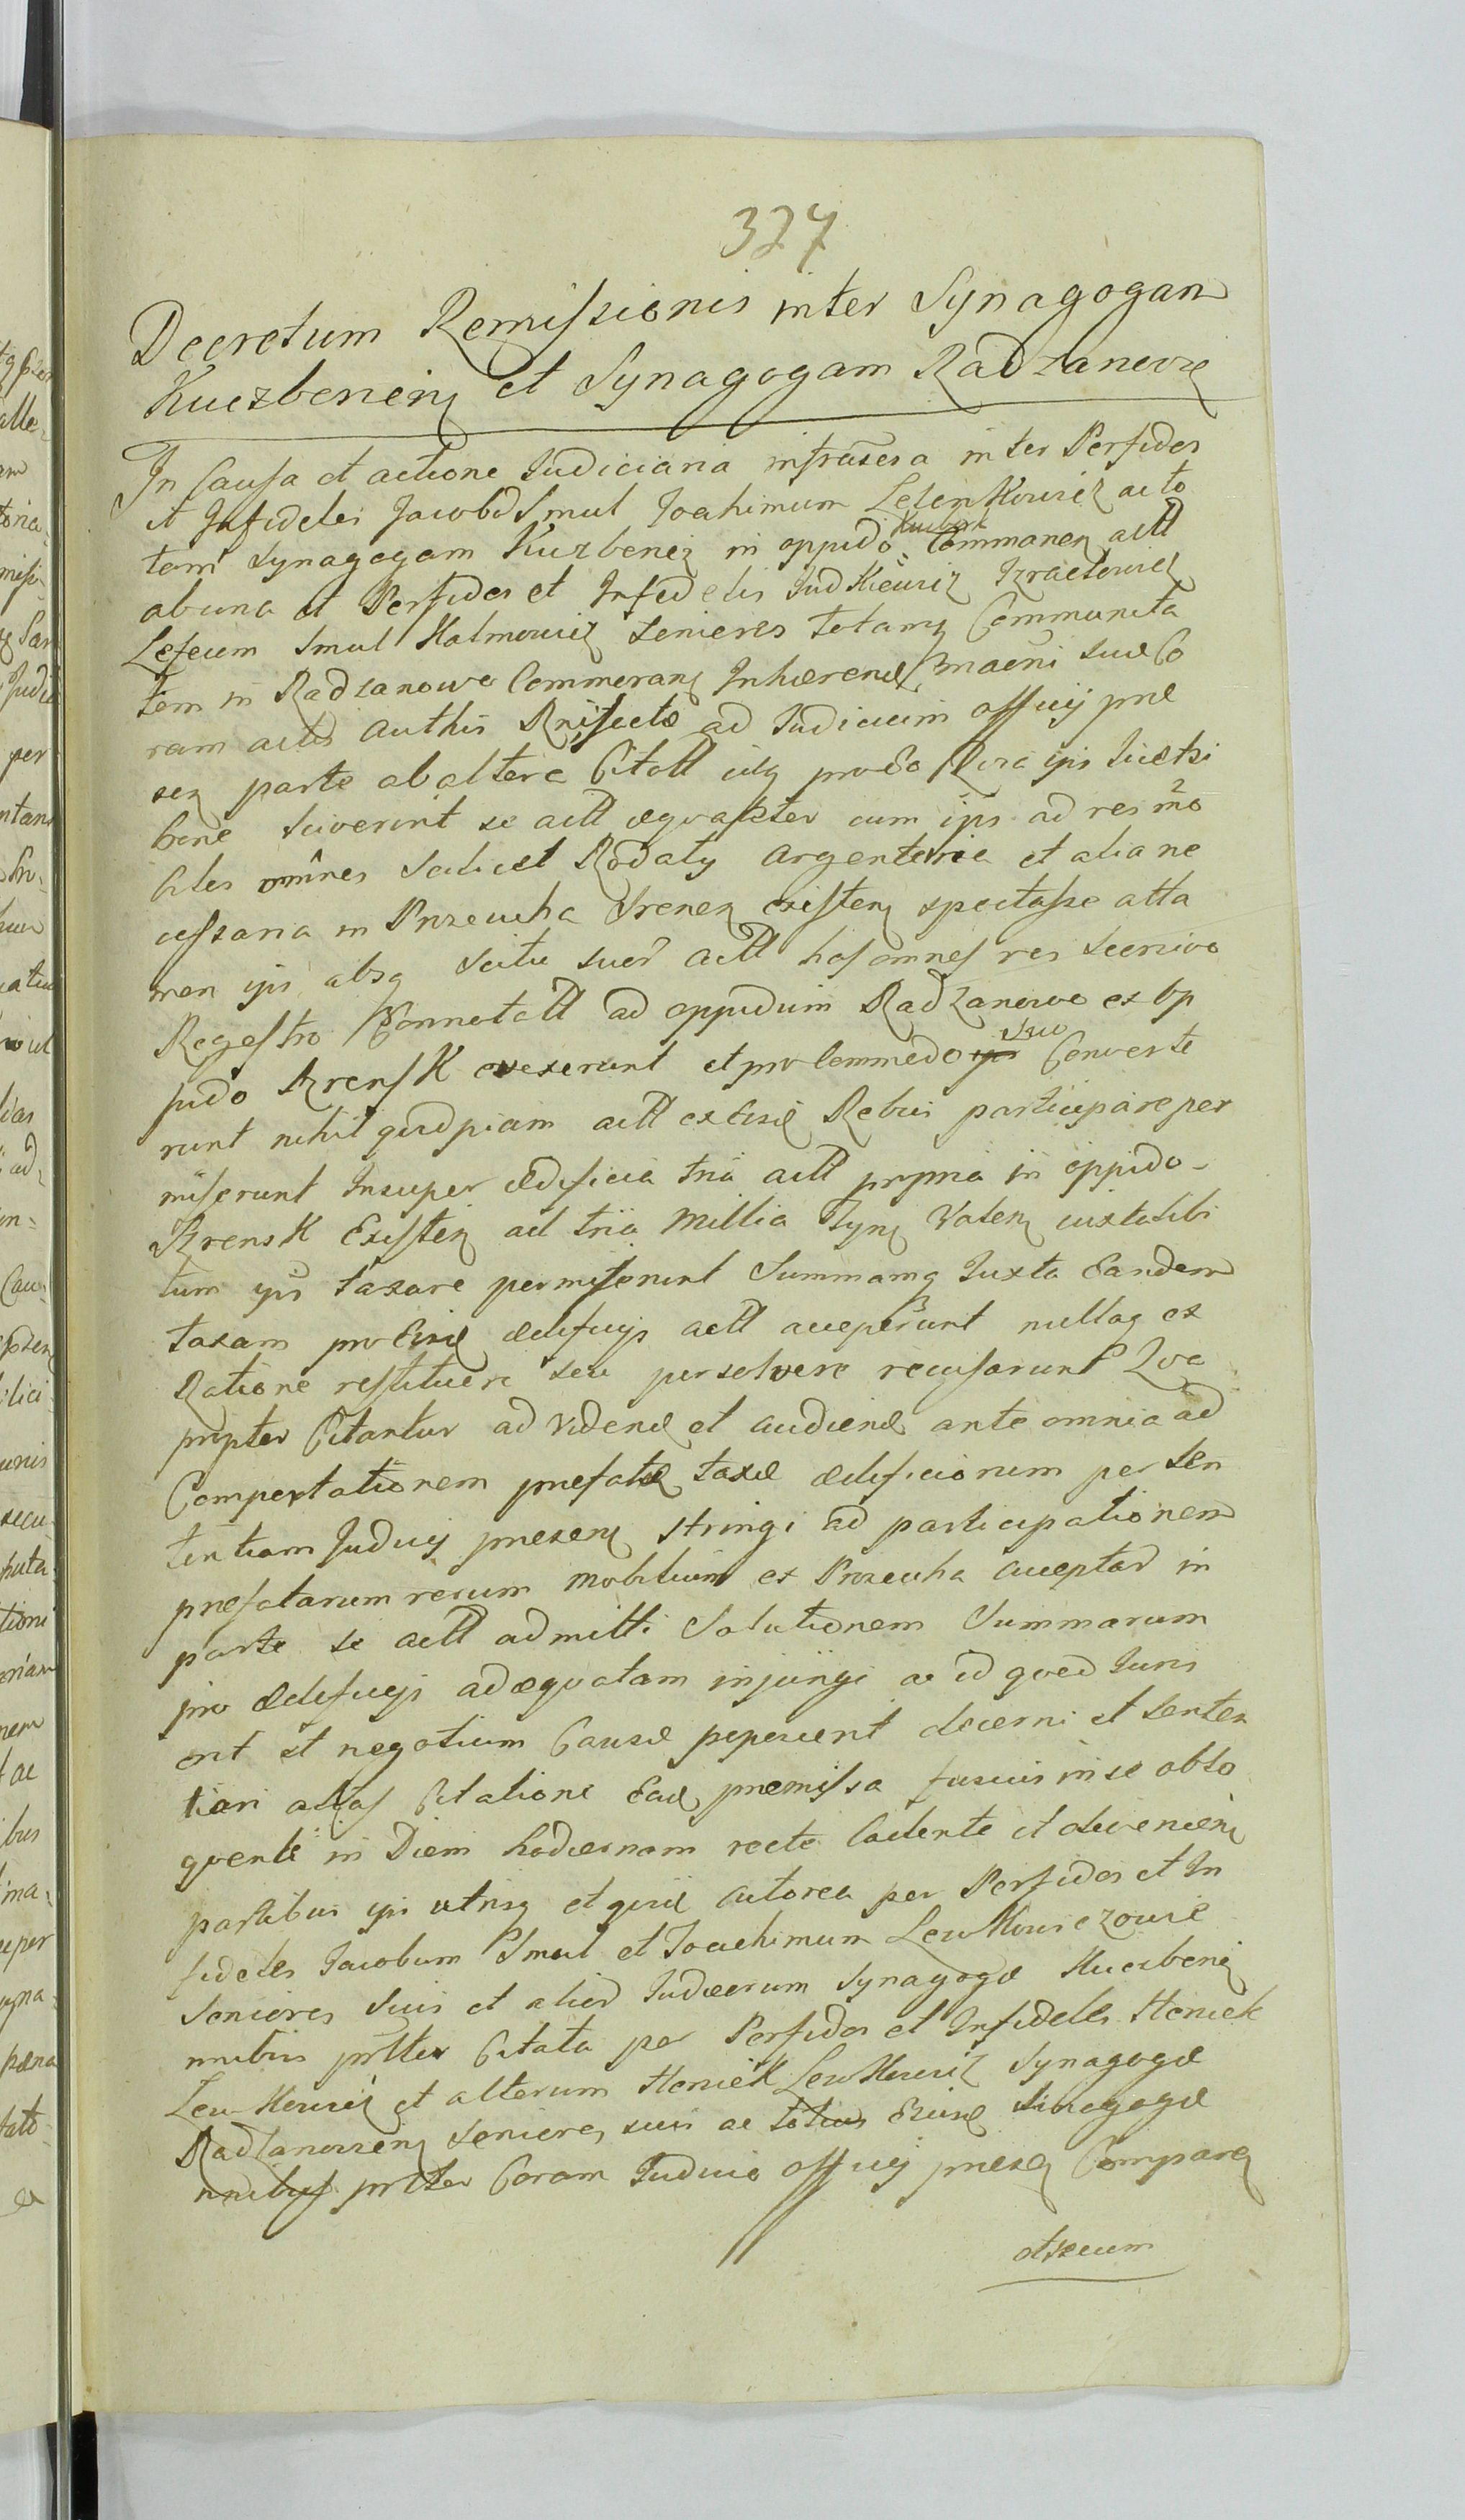 327
Decretum Remissionis inter Synagogam
Kuczbenẽn et Synagogam Radzanovien
In Causa et actione Judiciaria infrascra inter Perfidos
et Infideles Jacobũ Smul Joachimum Lewkowicz ac to
tam Synagogam Kuczbenen in oppido Kuczbork Commanen actt
ab una et Perfidos et Infideles Judkiewicz Izraelowicz
Smul Kalmowicz Seniores totamq Communita
tem in Radzanowo Commoran Inhærend
ram actis
sen parte ab altera Citatt
bene sciverint se actt æqualiter cum ips ad res mo
biles omnes scilicet Rodaly Argenteria et alia ne
cessaria in Prozeucha Srenen existen spectasse atta
men ips absq scitu suo actt has omnes res
Regestro Connotatt ad oppidum Radzanowo ex op
pido Szrensk evexerunt et pro Commodo suo Converte
runt nihil quidpiam actt ex Eisd Rebus participare per
miserunt Insuper ædificia tria actt propria in oppido
Szrensk Existen ad tria Millia Tyn Valen iuxta libi
tum ips taxare permiserunt Summamq Juxta Eandem
taxam pro Eisd ædificijs actt acceperunt nullaq ex
Ratione restituere seu persolvere recusarunt Qua
propter Citantur ad Vidend et audiend ante omnia ad
Comportationem præfatæ taxæ ædificiorum per Sen
tentiam Judicij præsen stringi ad participationem
præfatarum rerum Mobilium ex Prozeucha acceptar in
parte se actt admitti Solutionem Summarum
pro ædificijs adæquatam injungi ac id quod Juris
erit et negotium Causæ peposcerit decerni et Senten
tiari Citatione Ead præmissa fusius in se oblo
quente in Diem hodiernam recte Cadente et devenien
partibus ips utrisq actorea per Perfidos et In
fideles Jacobum Smul et Joachimum Lewkowiczowie
Seniores Suis et alior Judæorum Synagogæ Kuczbenen
nnibus prtter Citata per Perfidos et Infideles Heniek
Lewkowicz et alterum Heniek Lewkowicz Synagogæ
Radzanovien Seniores suis ac totius Eiusd Sinagogæ
nnibus prtter Coram Judicio officij præsen Comparen